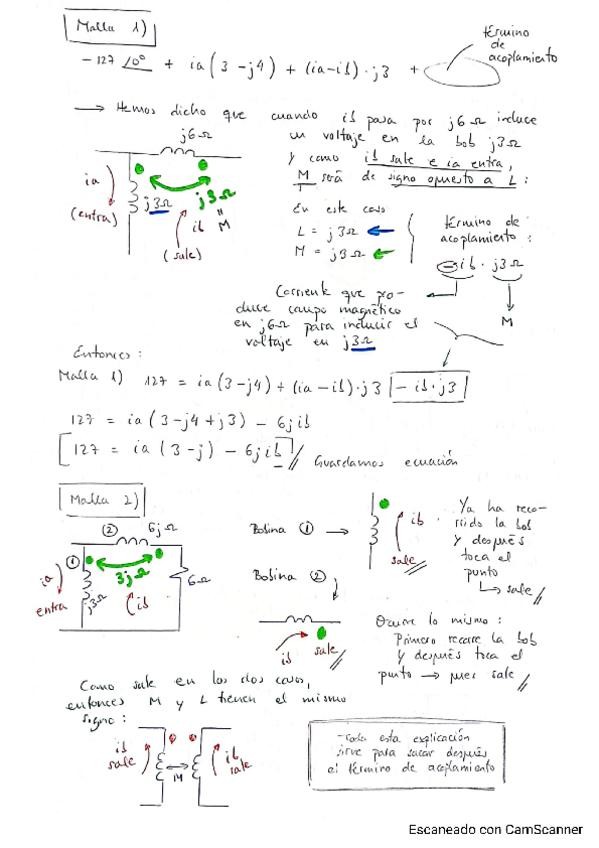 Malla 1)
- 127 ∠0° + ia(3-j4) + (ia-ib)·j3 +
término
de
acoplamiento
→ Hemos dicho que cuando ib pasa por j6Ω induce
un voltaje en la bob j3Ω
y como ib sale e ia entra,
M será de signo opuesto a L:
j6Ω
ia
(entra)
j3Ω
j3Ω
ib
"
M
(sale)
En este caso
L = j3Ω
M = j3Ω
término de
acoplamiento:
-ib·j3Ω
M
Corriente que pro-
duce campo magnético
en j6Ω para inducir el
voltaje en j3Ω
Entonces:
Malla 1) 127 = ia(3-j4) + (ia-ib)·j3 - ib·j3
127 = ia(3-j4+j3) - 6jib
[127 = ia(3-j) - 6jib]// Guardamos ecuación
Malla 2)
② 6jΩ
①
3jΩ
ia
entra
j3Ω
ib
6Ω
Bobina ① →
ib
sale//
Ya ha reco-
rrido la bob
y después
toca el
punto
↳ sale//
Bobina ②
ib sale//
Ocurre lo mismo:
Primero recorre la bob
y después toca el
punto → pues sale//
Como sale en los dos casos,
entonces M y L tienen el mismo
signo:
ib
sale
M
ib
sale
- Toda esta explicación
sirve para sacar después
el término de acoplamiento
Escaneado con CamScanner